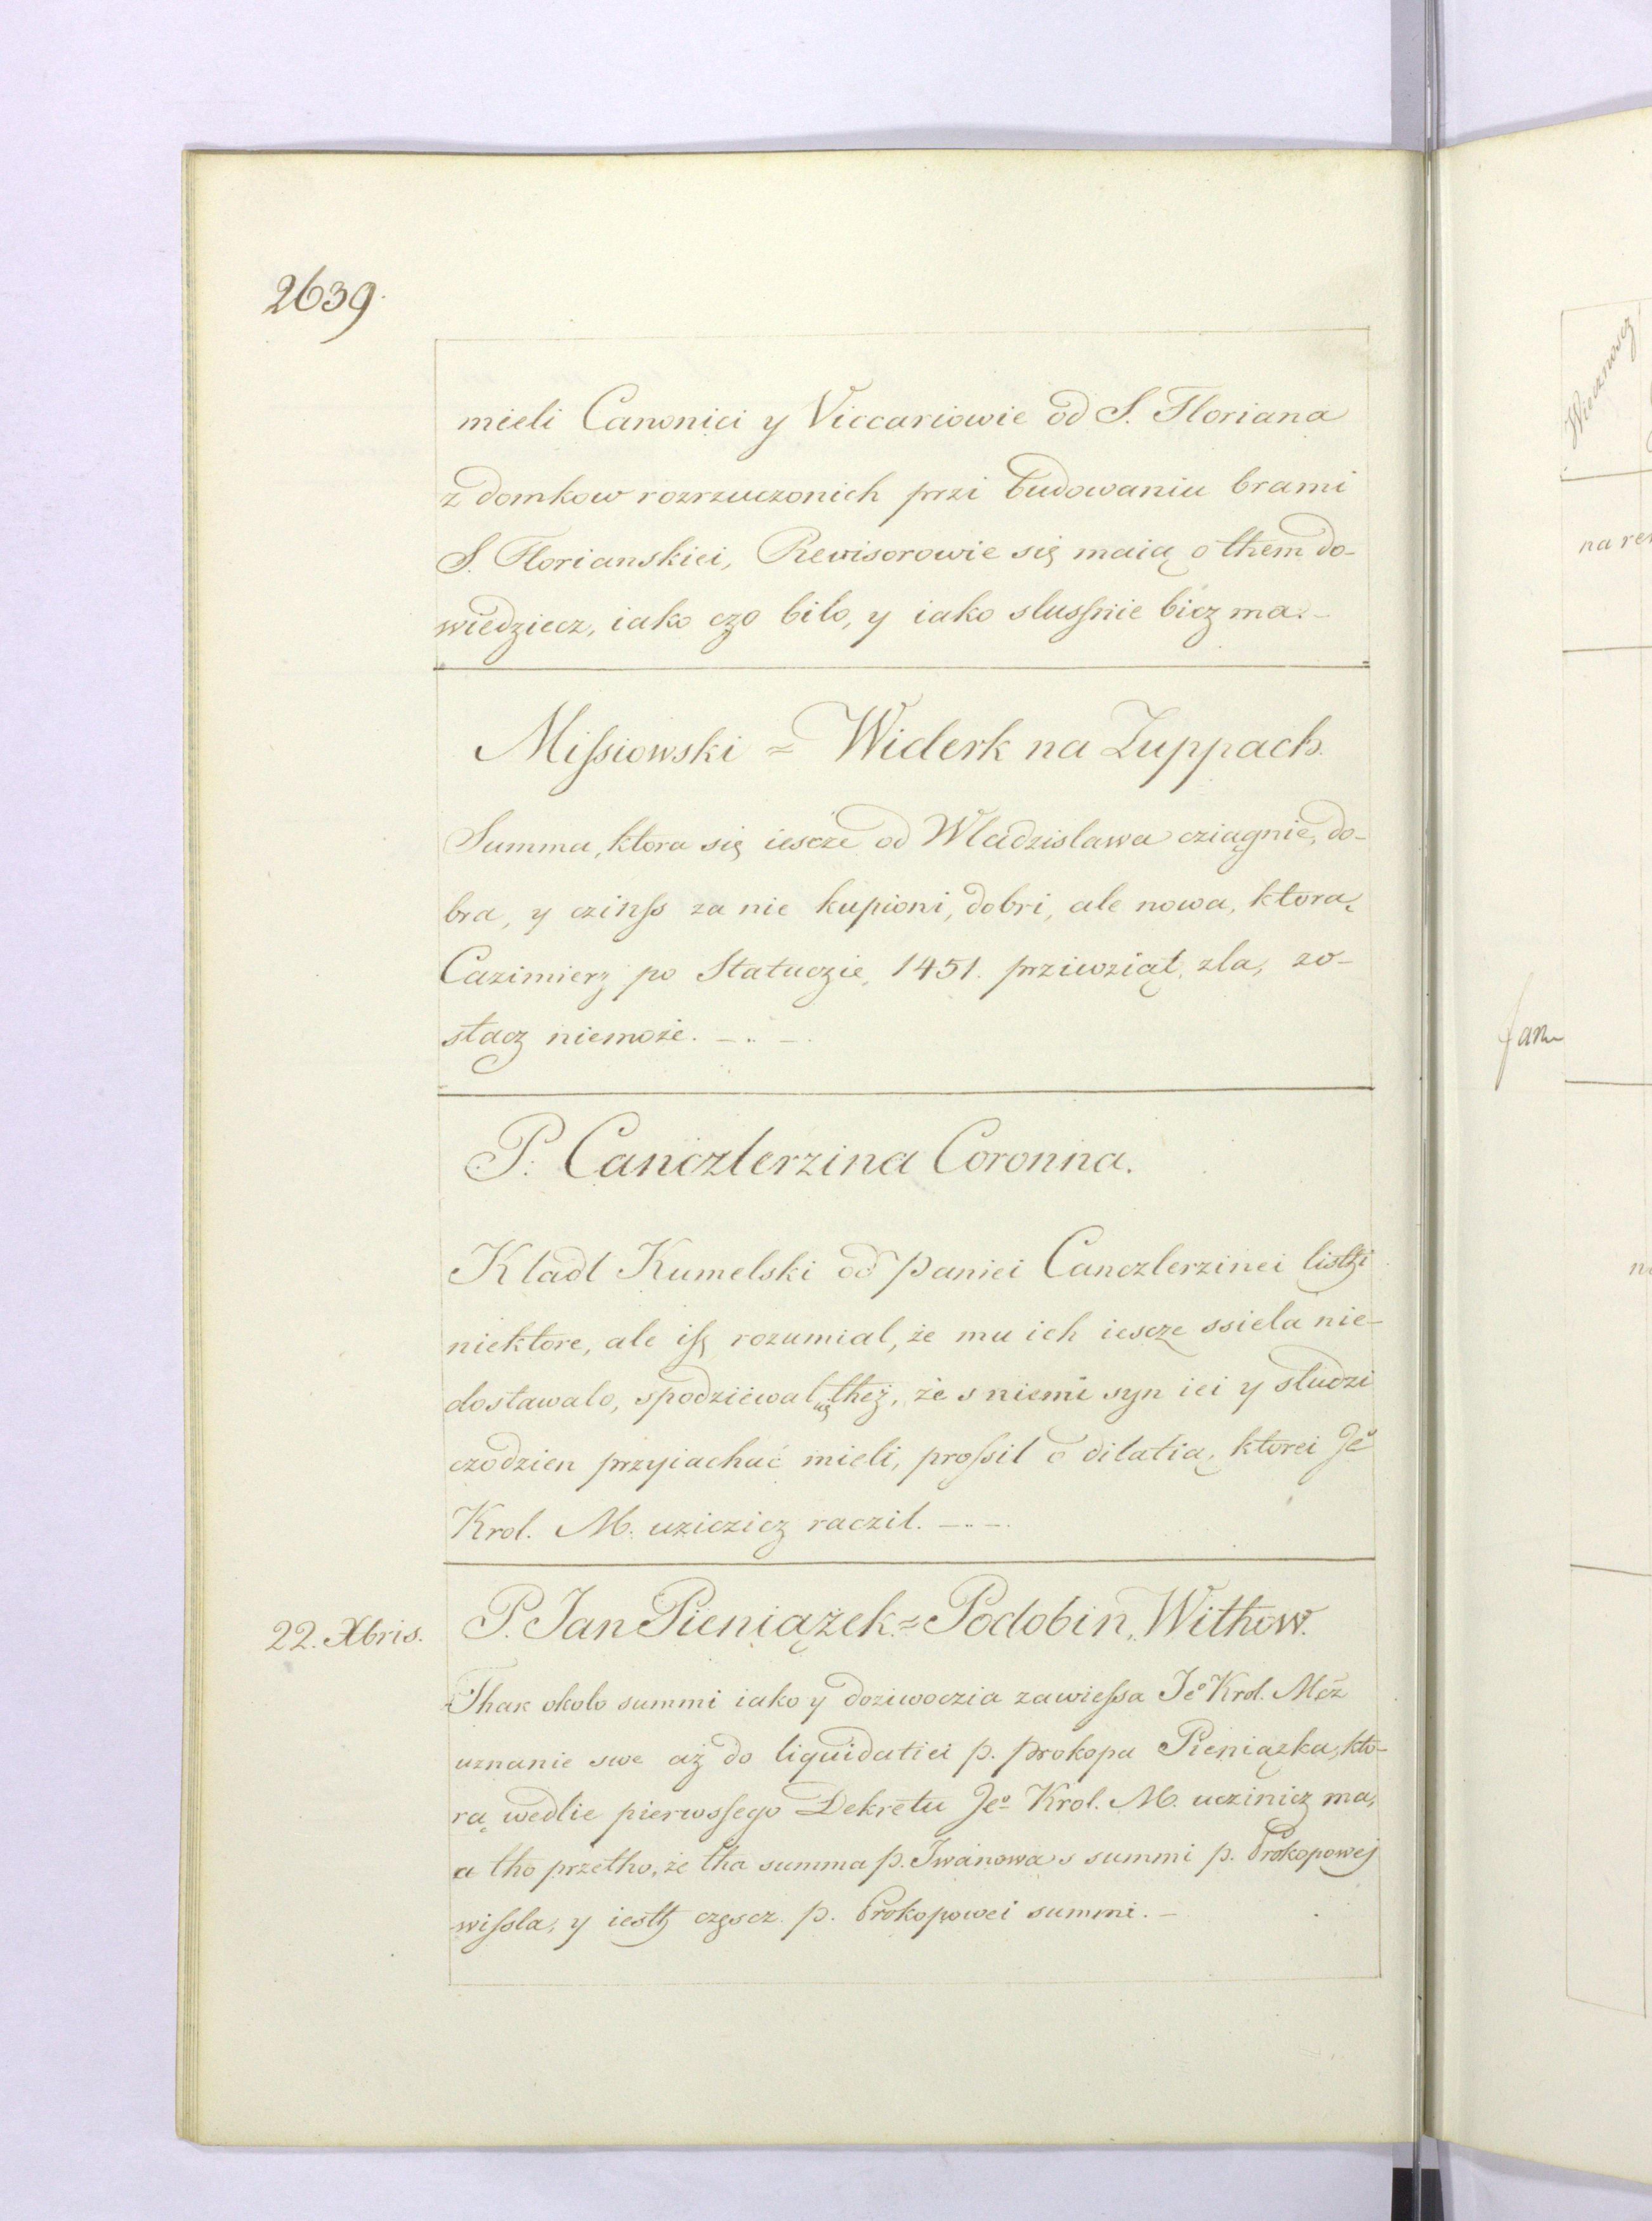 2639.
mieli Canonici y Viccariowie od S. Floriana
z domkow rozrzuczonich przi budowaniu brami
S. Florianskiei, Revisorowie się maią o them do-
wiedziecz, iako czo bilo, y iako slusſnie bicz ma.
Miſsiowski = Widerk na Zuppach.
Summa, ktora się iescze od Wladzislawa cziągnie, do-
bra, y czinſs za nie kupioni, dobri, ale nowa, ktorą
Cazimierz po Statuczie, 1451. prziwziął, zla, zo-
stacz niemoże.
P. Canczlerzina Coronna.
Kladl Kumelski od Paniei Canczlerzinei listhi
niektore, ale iſz rozumial, że mu ich iescze ssiela nie-
dostawalo, spodziewal się theż, że s niemi syn iei y sludzi
czodzien przyiachać mieli, proſsil o dilatią, ktorei Jeº
Krol. M. uziczicz raczil.
22. Xbris.
P. Jan Pieniążek = Podobin, Withow.
Thak okolo summi iako y doziwoczia zawieſsa Jeº Krol. Mcz
uznanie swe aż do liquidatiei p. Prokopa Pieniązka, kto-
rą wedlie pierwsſego Dekretu Jeº Krol. M. uczinicz ma,
a tho przetho, że tha summa p. Iwanowa s summi p. Prokopowej
wiſsla, y iesth częscz p. Prokopowei summi.
Wiecznoscz